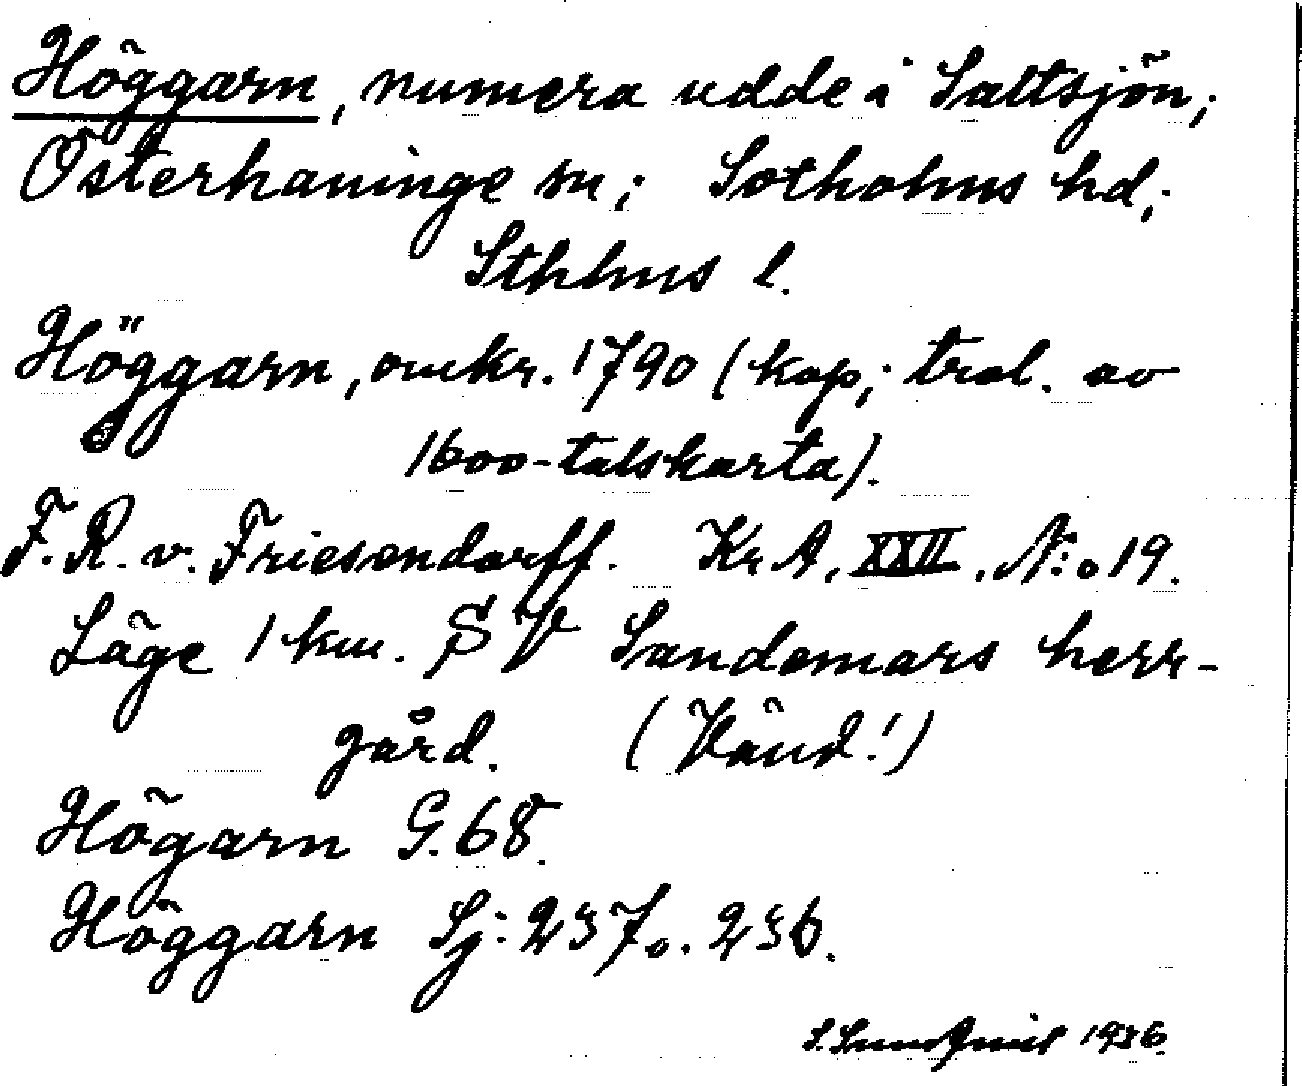 Höggarn, numera udde i Saltsjön;
Österhaninge sn; Sotholms hd;
Sthlms l.
Höggarn, omkr. 1790 (kop; trol. av
1600-talskarta).
F. R. v. Friesendorff. Kr A, XXII, N:o 19.
Läge 1 km. SV Sandemars herr-
gård. (Vänd!)
Högarn G. 68.
Höggarn Sj: 237 o. 236.
S. Sundqvist 1936.